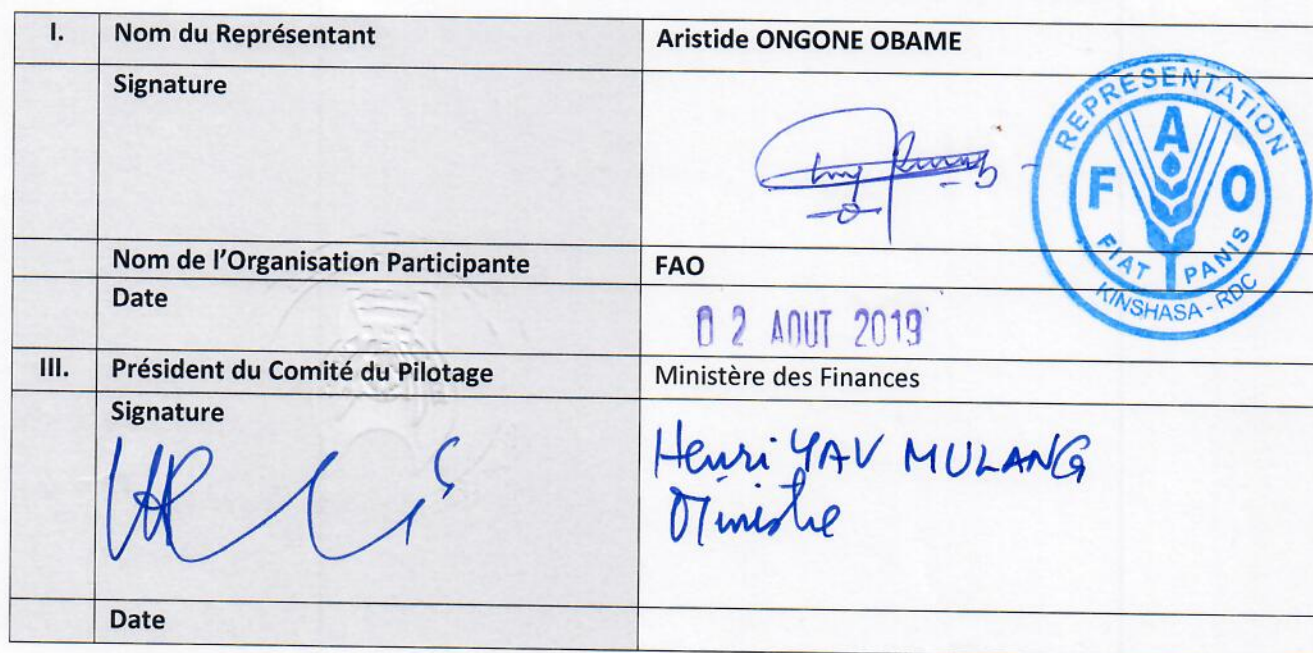 I. Nom du Représentant Aristide ONGONE OBAME
Signature
REPRESENTATION
F A O
FIAT PANIS
KINSHASA - RDC
Nom de l'Organisation Participante FAO
Date 02 AOUT 2019
III. Président du Comité du Pilotage Ministère des Finances
Signature Henri YAV MULANG
Ministre
Date